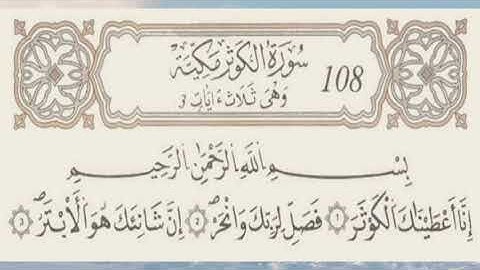 سُورَةُ الْكَوْثَرِ مَكِّيَّةٌ
108
وَهِيَ ثَلَاثُ اٰيَاتٍ
بِسْمِ اللّٰهِ الرَّحْمٰنِ الرَّحِيمِ
اِنَّا اَعْطَيْنَاكَ الْكَوْثَرَ ۝١ فَصَلِّ لِرَبِّكَ وَانْحَرْ ۝٢ اِنَّ شَانِئَكَ هُوَ الْاَبْتَرُ ۝٣